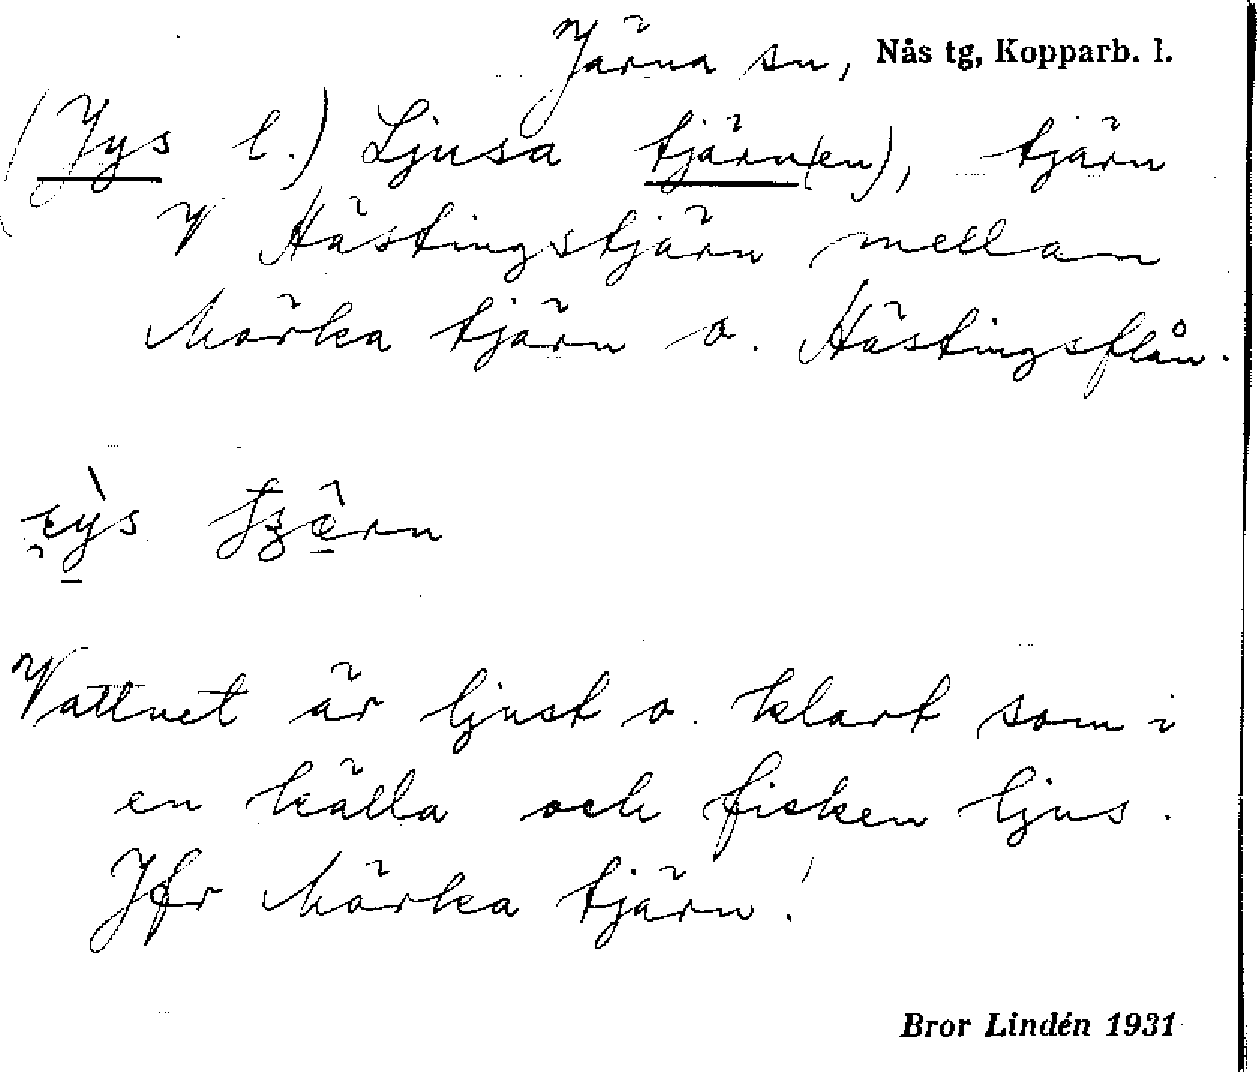 Järna sn, Nås tg, Kopparb. l.
(Jys l.) Ljusa tjärn(en), tjärn
V Hästingstjärn mellan
Mörka tjärn o. Hästingsflån.
tjärn
Vattnet är ljust o. klart som i
en källa och fisken ljus.
Jfr Mörka tjärn!
Bror Lindén 1931